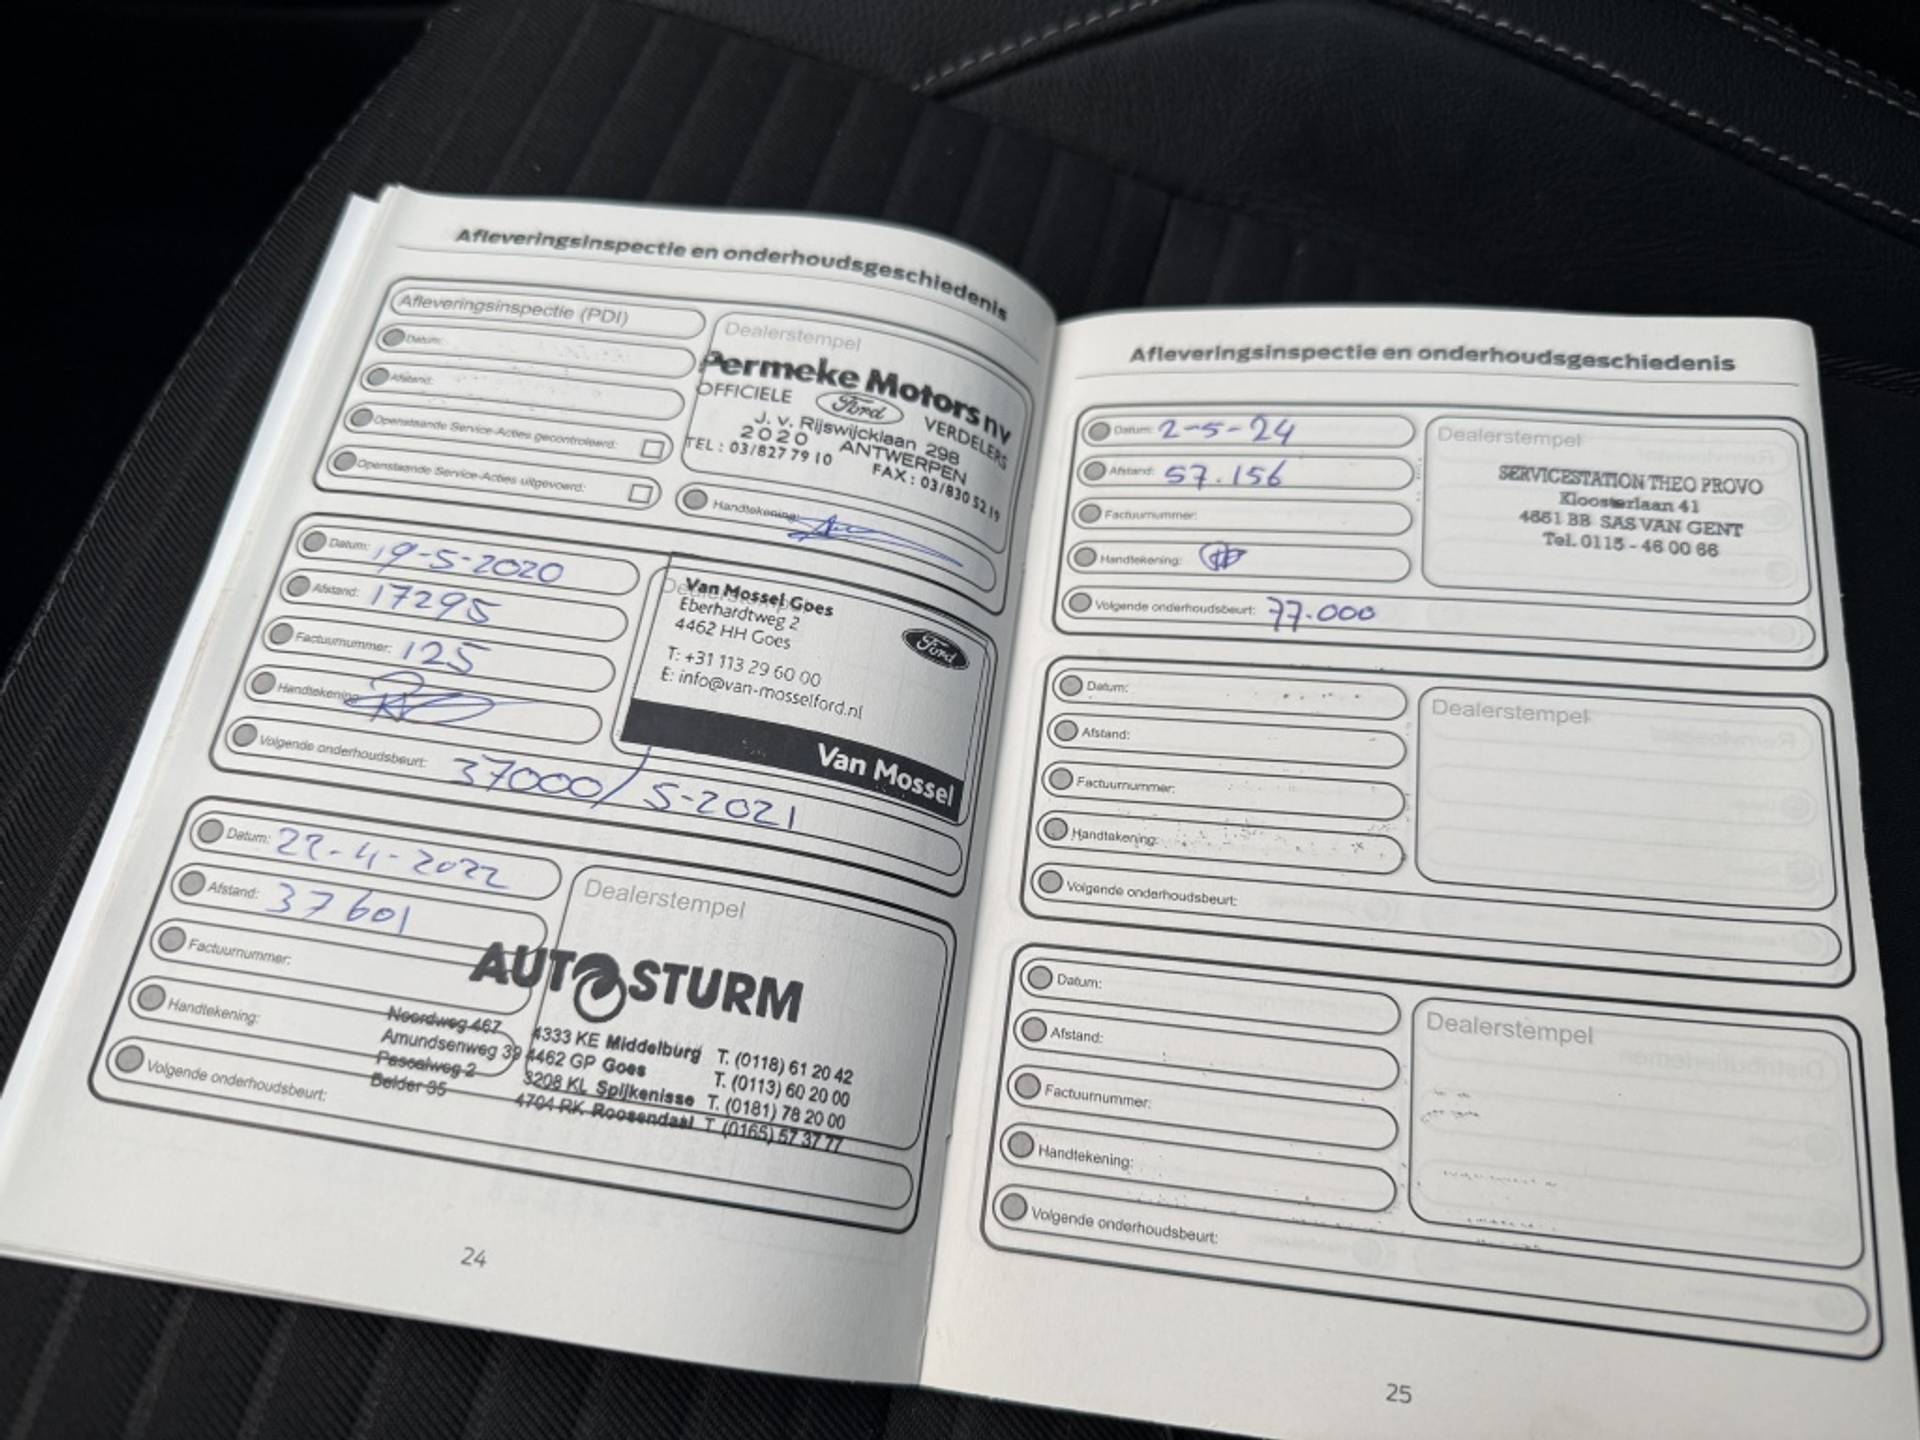 Afleveringsinspectie en onderhoudsgeschiedenis
Afleveringsinspectie (PDI)
Datum:
Afstand:
Openstaande Service-Acties gecontroleerd:
Openstaande Service-Acties uitgevoerd:
Dealerstempel
Permeke Motors nv
OFFICIELE Ford VERDELERS
J. v. Rijswijcklaan 298
2020 ANTWERPEN
TEL : 03/827 79 10 FAX : 03/830 52 19
Handtekening:
Datum: 19-5-2020
Afstand: 17295
Factuurnummer: 125
Handtekening:
Volgende onderhoudsbeurt: 37000/ 5-2021
Dealerstempel
Van Mossel Goes
Eberhardtweg 2
4462 HH Goes
Ford
T: +31 113 29 60 00
E: info@van-mosselford.nl
Van Mossel
Datum: 22-4-2022
Afstand: 37601
Factuurnummer:
Handtekening:
Volgende onderhoudsbeurt:
Dealerstempel
AUTOSTURM
Noordweg 467 4333 KE Middelburg T. (0118) 61 20 42
Amundsenweg 39 4462 GP Goes T. (0113) 60 20 00
Pascalweg 2 3208 KL Spijkenisse T. (0181) 78 20 00
Belder 35 4704 RK Roosendaal T (0165) 57 37 77
24
Afleveringsinspectie en onderhoudsgeschiedenis
Datum: 2-5-24
Afstand: 57.156
Factuurnummer:
Handtekening:
Volgende onderhoudsbeurt: 77.000
Dealerstempel
SERVICESTATION THEO PROVO
Kloosterlaan 41
4551 BB SAS VAN GENT
Tel. 0115 - 46 00 66
Datum:
Afstand:
Factuurnummer:
Handtekening:
Volgende onderhoudsbeurt:
Dealerstempel
Datum:
Afstand:
Factuurnummer:
Handtekening:
Volgende onderhoudsbeurt:
Dealerstempel
25